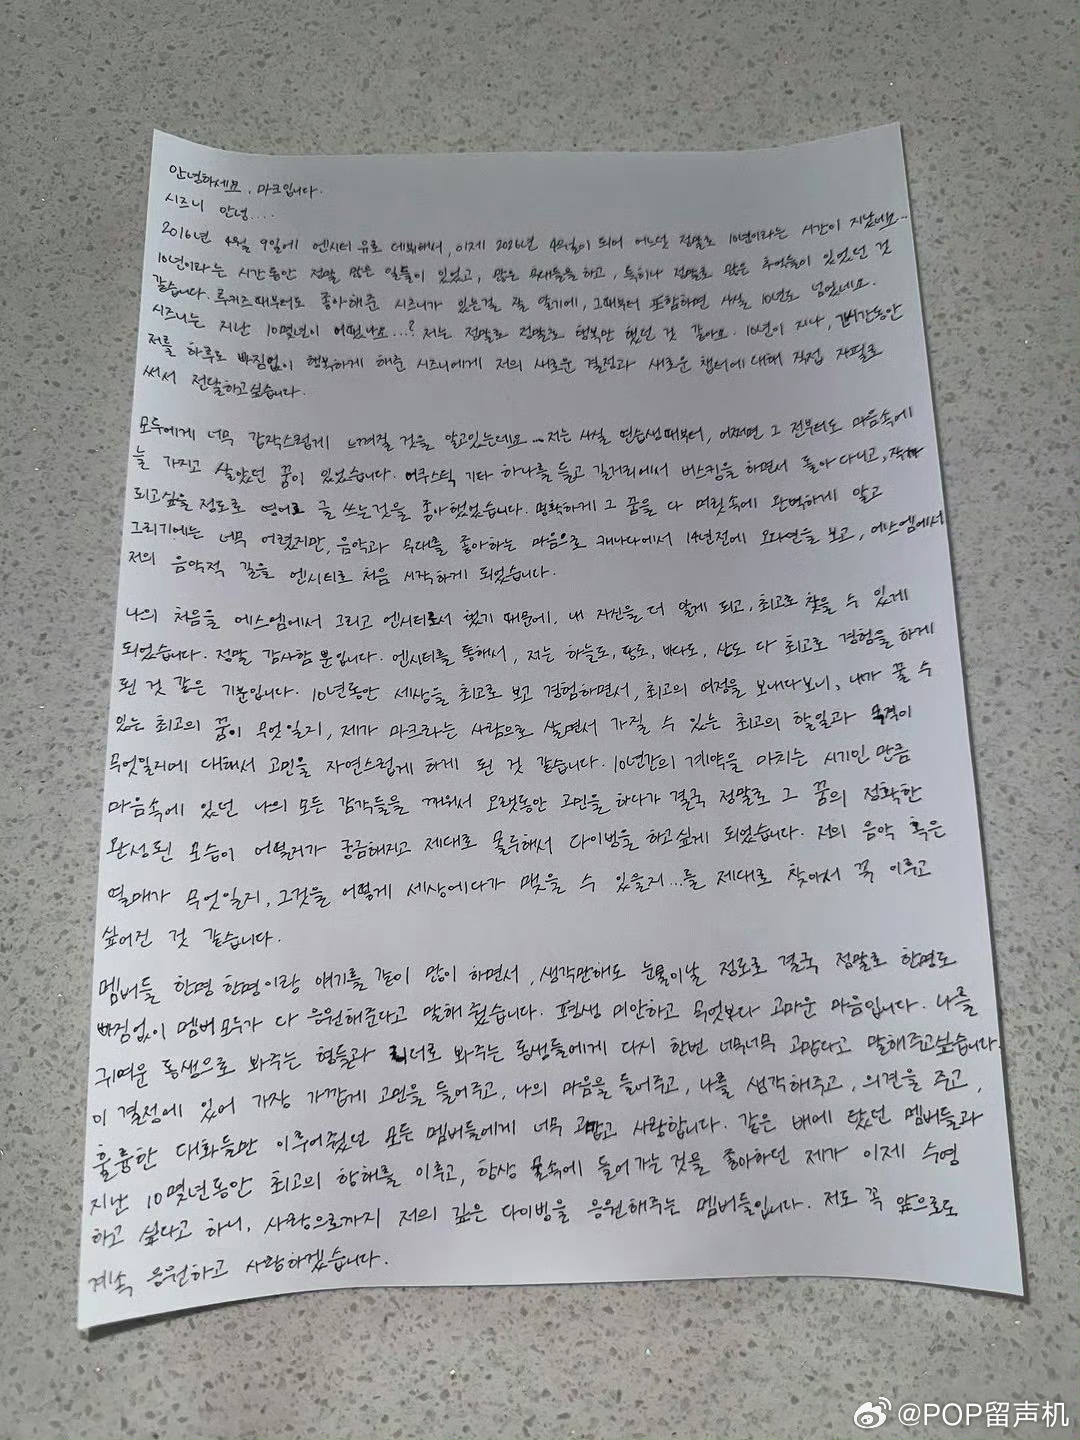 안녕하세요, 마크입니다.
시즈니 안녕....
2016년 4월 9일에 엔시티 유로 데뷔해서, 이제 2026년 4월이 되어 어느샌 정말로 10년이라는 시간이 지났네요..
10년이라는 시간동안 정말 많은 일들이 있었고, 많은 무대들을 하고, 특히나 정말로 많은 추억들이 있었던 것
같습니다. 루키즈때부터도 좋아해준 시즈니가 있는걸 잘 알기에, 그때부터 포함하면 사실 10년도 넘었네요.
시즈니는 지난 10몇년이 어땠나요...? 저는 정말로 정말로 행복만 했던 것 같아요. 10년이 지나, 긴시간동안
저를 하루도 빠짐없이 행복하게 해준 시즈니에게 저의 새로운 결정과 새로운 챕터에 대해 직접 자필로
써서 전달하고싶습니다.
모두에게 너무 갑작스럽게 느껴질 것을 알고있는데요... 저는 사실 연습생때부터, 어쩌면 그 전부터도 마음속에
늘 가지고 살았던 꿈이 있었습니다. 어쿠스틱 기타 하나를 들고 길거리에서 버스킹을 하면서 돌아다니고, 작가
되고싶을 정도로 영어로 글 쓰는것을 좋아했었습니다. 명확하게 그 꿈을 다 머릿속에 완벽하게 알고
그리기에는 너무 어렸지만, 음악과 무대를 좋아하는 마음으로 캐나다에서 14년전에 오디션을 보고, 에스엠에서
저의 음악적 길을 엔시티로 처음 시작하게 되었습니다.
나의 처음을 에스엠에서 그리고 엔시티로서 했기 때문에, 내 자신을 더 알게 되고, 최고로 찾을 수 있게
되었습니다. 정말 감사할 뿐입니다. 엔시티를 통해서, 저는 하늘도, 땅도, 바다도, 산도 다 최고로 경험을 하게
된 것 같은 기분입니다. 10년동안 세상을 최고로 보고 경험하면서, 최고의 여정을 보내다보니, 내가 꿀 수
있는 최고의 꿈이 무엇일지, 제가 마크라는 사람으로 살면서 가질 수 있는 최고의 할일과 목적이
무엇일지에 대해서 고민을 자연스럽게 하게 된 것 같습니다. 10년간의 계약을 마치는 시기인 만큼
마음속에 있던 나의 모든 감각들을 깨워서 오랫동안 고민을 하다가 결국 정말로 그 꿈의 정확한
완성된 모습이 어떨지가 궁금해지고 제대로 몰두해서 다이빙을 하고싶게 되었습니다. 저의 음악 혹은
열매가 무엇일지, 그것을 어떻게 세상에다가 맺을 수 있을지...를 제대로 찾아서 꼭 이루고
싶어진 것 같습니다.
멤버들 한명 한명이랑 얘기를 같이 많이 하면서, 생각만해도 눈물이날 정도로 결국 정말로 한명도
빠짐없이 멤버 모두가 다 응원해준다고 말해 줬습니다. 평생 미안하고 무엇보다 고마운 마음입니다. 나를
귀여운 동생으로 봐주는 형들과 리더로 봐주는 동생들에게 다시 한번 너무너무 고맙다고 말해주고싶습니다.
이 결정에 있어 가장 가깝게 고민을 들어주고, 나의 마음을 들어주고, 나를 생각해주고, 의견을 주고,
훌륭한 대화들만 이루어줬던 모든 멤버들에게 너무 고맙고 사랑합니다. 같은 배에 탔던 멤버들과
지난 10몇년동안 최고의 항해를 이루고, 항상 물속에 들어가는것을 좋아하던 제가 이제 수영
하고 싶다고 하니, 사랑으로까지 저의 깊은 다이빙을 응원해주는 멤버들입니다. 저도 꼭 앞으로도
계속 응원하고 사랑하겠습니다.
@POP留声机